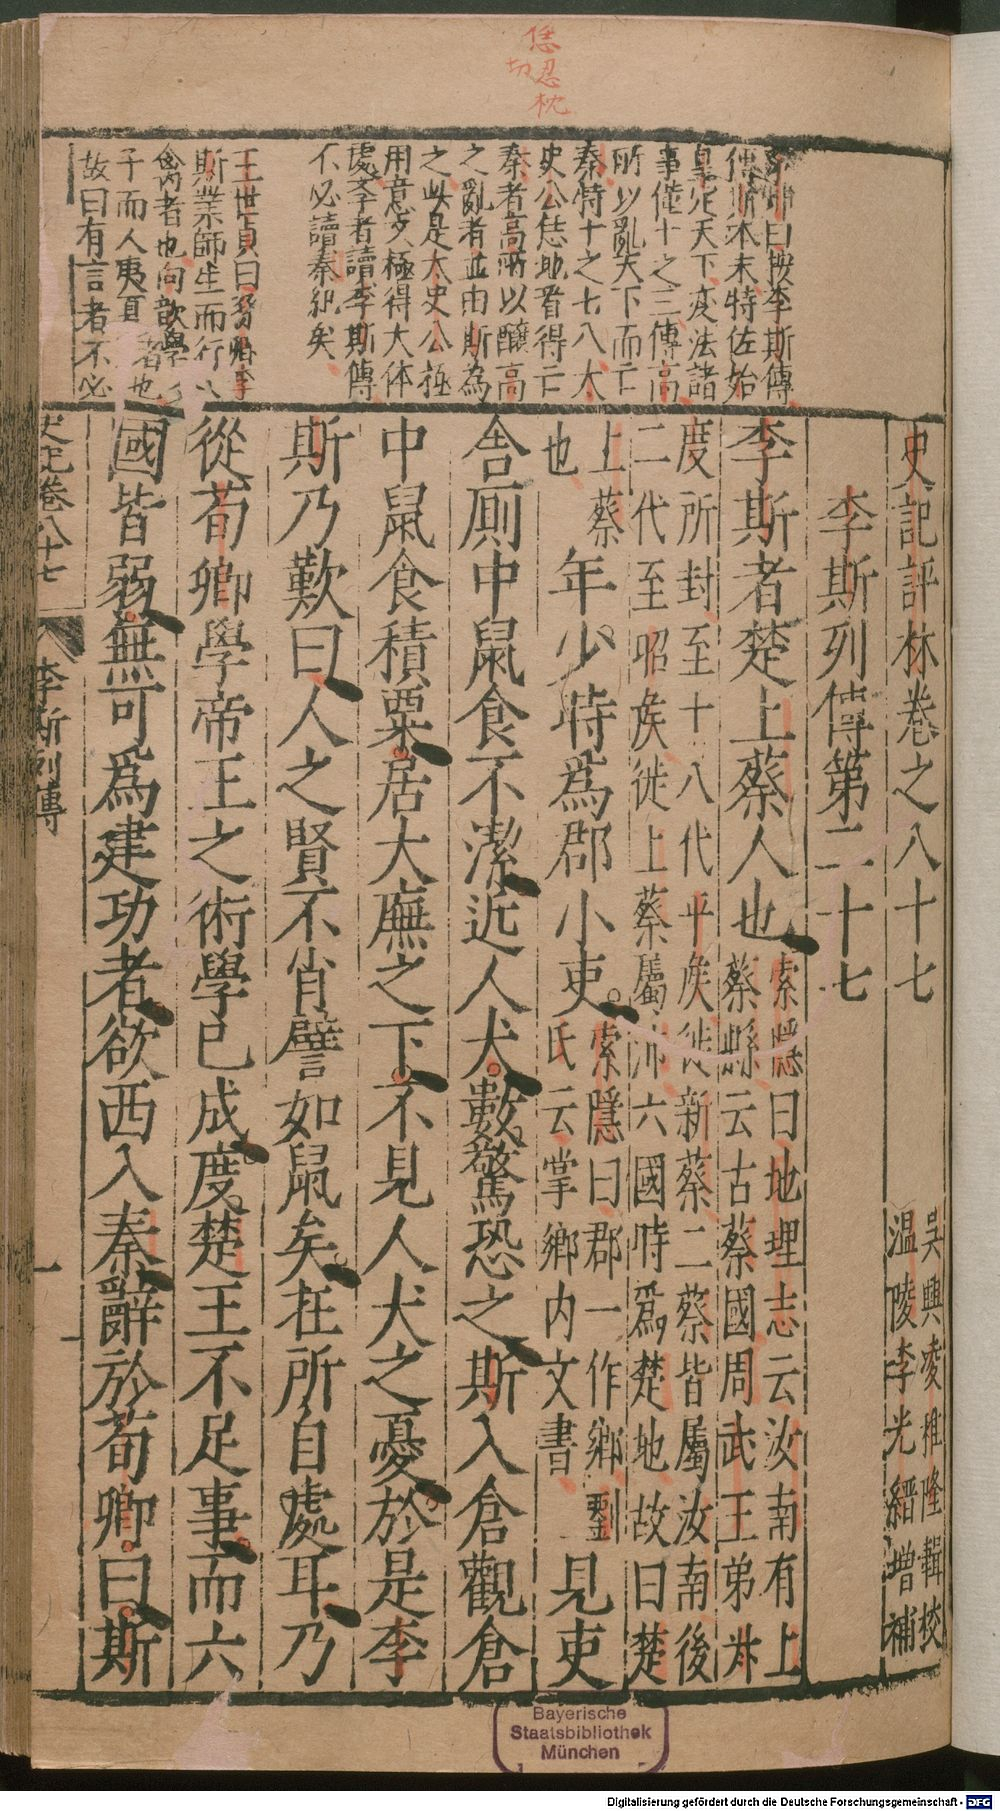 恁忍枕
切
曰按李斯傳
傳斯本末特佐始
皇定天下變法諸
事僅十之三傳高
所以亂天下而亡
秦特十之七八太
史公恁地看得亡
秦者高所以釀高
之亂者並由斯為
之此是太史公極
用意文極得大体
處李者讀李斯傳
不必讀秦紀矣
王世貞曰
斯業師生而行
禽者也向歆學
子而人夷夏者也
故曰有言者不必
史記評林卷之八十七
吳興凌稚隆輯校
溫陵李光縉增補
李斯列傳第二十七
李斯者楚上蔡人也
索隱曰地理志云汝南有上
蔡縣云古蔡國周武王弟叔
度所封至十八代平侯徙新蔡二蔡皆屬汝南後
二代至昭侯徙上蔡屬沛六國時為楚地故曰楚
上蔡
也
年少時為郡小吏
索隱曰郡一作鄉劉
氏云掌鄉內文書
見吏
舍廁中鼠食不潔近人犬數驚恐之斯入倉觀倉
中鼠食積粟居大廡之下不見人犬之憂於是李
斯乃歎曰人之賢不肖譬如鼠矣在所自處耳乃
從荀卿學帝王之術學已成度楚王不足事而六
國皆弱無可為建功者欲西入秦辭於荀卿曰斯
史記卷八十七 李斯列傳 一
Bayerische
Staatsbibliothek
München
Digitalisierung gefördert durch die Deutsche Forschungsgemeinschaft - DFG